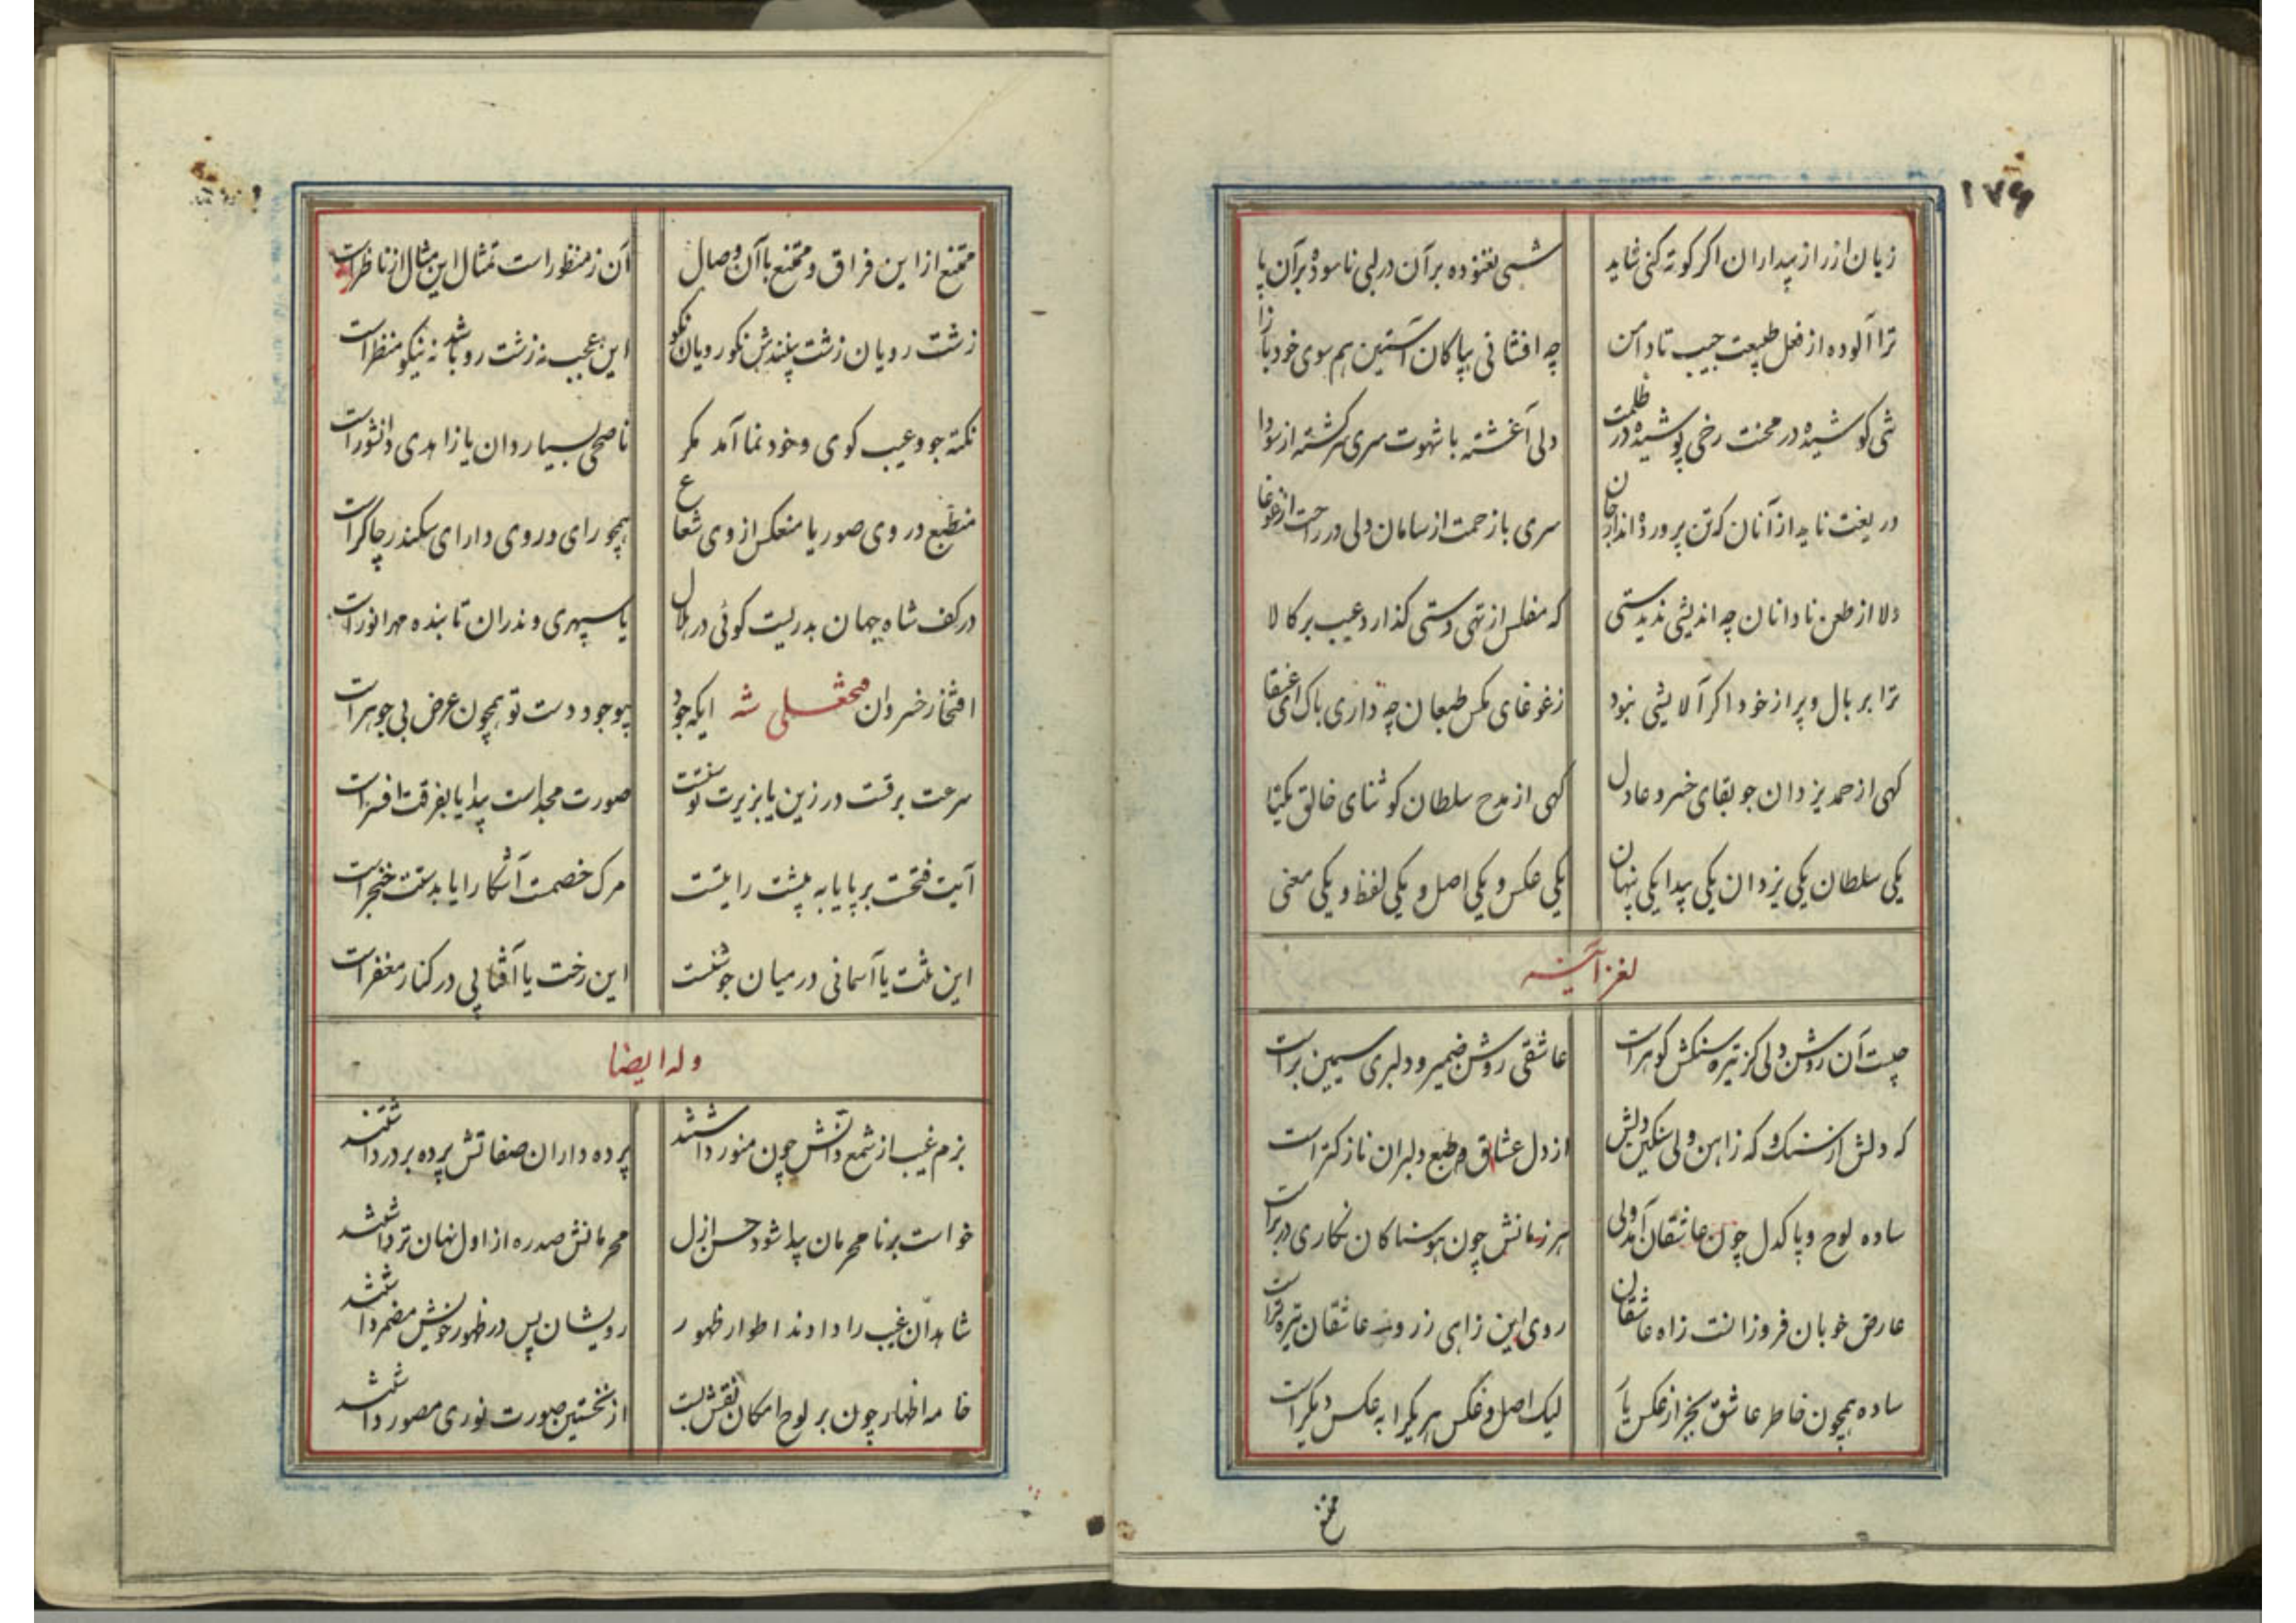 ۱۷۶
زبان از راز بیداران اکر کوته کنی شاید شبی نغنوده بر آن در لبی ناسوده بر آن پا
ترا آلوده از فعل طبیعت جیب تا دامن چه افشانی بپاکان آستین هم سوی خود باز آ
تنی کوشیده در محنت رخی پوشیده در ظلمت دلی آغشته با شهوت سری سرکشته از سودا
دریغت ناید از آنان که تن پرورده‌اند از جان سری با زحمت از سامان دلی در راحت از غوغا
دلا از طعن نادانان چه اندیشی ندیدستی که مفلس از تهی دستی کذارد عیب بر کالا
ترا بر بال و پر از خود اکر آلایشی نبود ز غوغای مکس طبعان چه داری باک ای عنقا
کهی از حمد یزدان جو بقای خسرو عادل کهی از مدح سلطان کو ثنای خالق یکتا
یکی سلطان یکی یزدان یکی پیدا یکی پنهان یکی عکس و یکی اصل و یکی لفظ و یکی معنی
لغز آینه
چیست آن روشن دلی کز تیره سنکش کوهر است عاشقی روشن ضمیر و دلبری سیمین بر است
که دلش از سنک و که ز اهن ولی سنکین دلش از دل عشاق و طبع دلبران نازکتر است
ساده لوح و پاکدل چون عاشقان آمد ولی هر زمانش چون هوسناکان نکاری در بر است
عارض خوبان فروزانست ز اه عاشقان روی این ز اهی ز روی عاشقان تیره‌تر است
ساده همچون خاطر عاشق بجز از عکس یار لیک اصل و عکس هر یکرا به عکس دیکر است
ممتنع
ممتنع از این فراق و ممتنع با آن وصال آن ز منظور است تمثال این مثال از ناظر است
زشت رویان زشت بینندش نکورویان نکو این عجب نه زشت رو باشد نه نیکو منظر است
نکته جو و عیب کوی و خودنما آمد مکر ناصحی بسیاردان یا زاهدی دانشور است
منطبع در وی صور یا منعکس از وی شعاع همچو رای و روی دارای سکندر چاکر است
در کف شاه جهان بدریست کوئی در هلال یا سپهری وندران تابنده مهر انور است
افتخار خسروان فتحعلی شه ایکه جود بیوجود دست تو همچون عرض بی جوهر است
سرعت برقست در زین یا بزیرت توسنست صورت مجداست پیدا یا بفرقت افسر است
آیت فتحست بر پا یا به پیشت رایتست مرک خصمت آشکارا یا بدستت خنجر است
این تنت یا آسمانی در میان جوشنست این رخت یا آفتابی در کنار مغفر است
وله ایضا
بزم غیب از شمع ذاتش چون منور داشتند پرده داران صفاتش پرده بر در داشتند
خواست بر نامحرمان پیدا شود حسن ازل محرمانش صدره از اول نهان‌تر داشتند
شاهدان غیب را دادند اطوار ظهور رویشان پس در ظهور خویش مضمر داشتند
خامه اظهار چون بر لوح امکان نقش بست از نخستین صورت نوری مصور داشتند